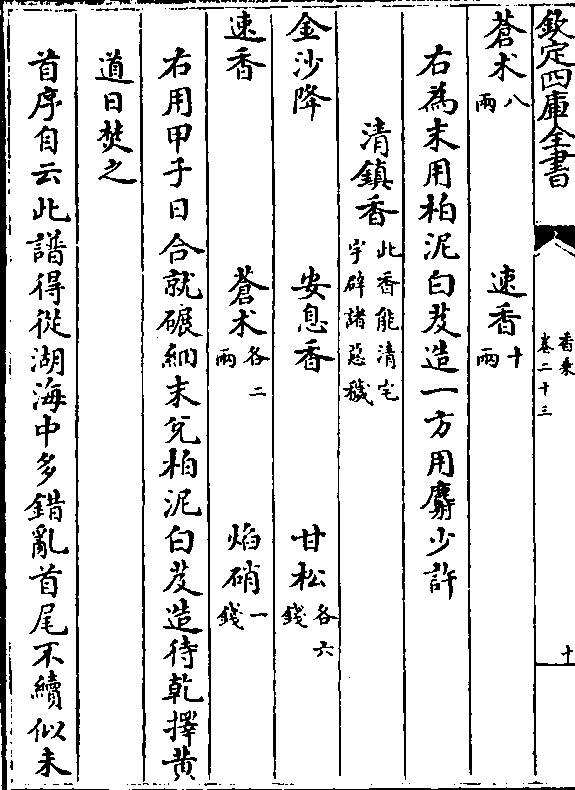 欽定四庫全書
香乘
卷二十三
十
蒼术八兩 速香十兩
右為末用柏泥白芨造一方用麝少許
清鎮香此香能清宅宇辟諸惡穢
金沙降 安息香 甘松各六錢
速香 蒼术各二兩 焰硝一錢
右用甲子日合就碾細末兊柏泥白芨造待乾擇黄
道日焚之
首序自云此譜得從湖海中多錯亂首尾不續似未